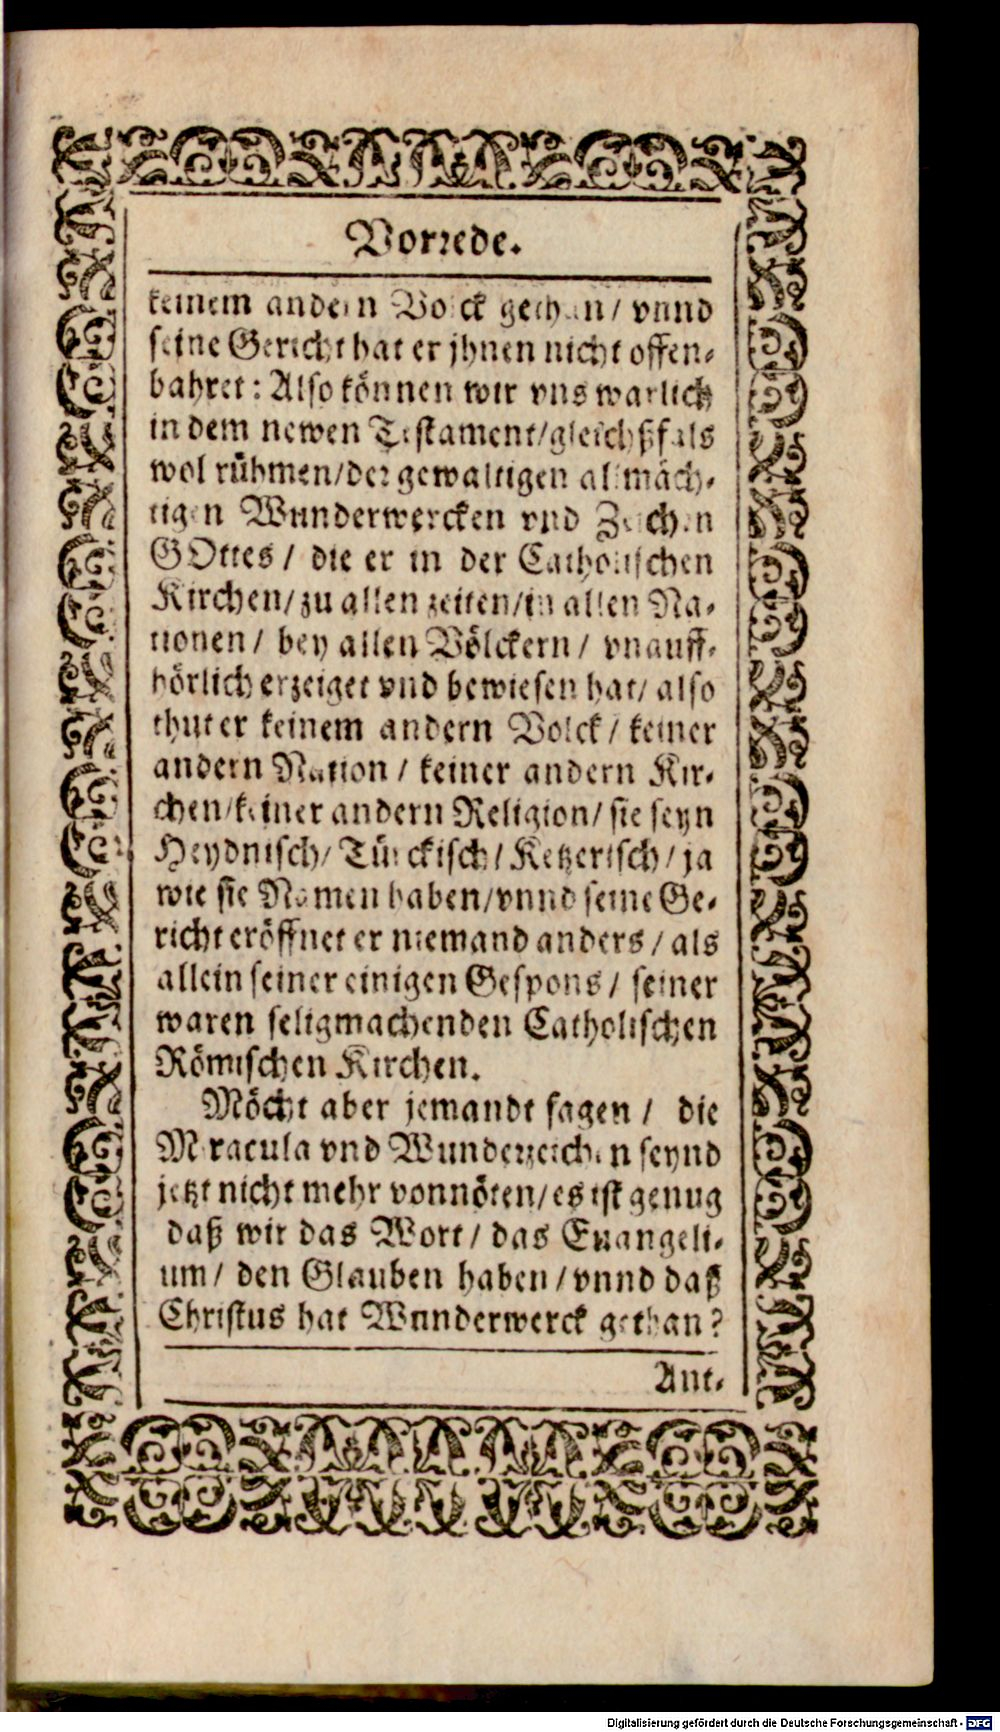 Vorrede.
keinem andern Volck gethan / vnnd
seine Gericht hat er jhnen nicht offen-
bahret: Also können wir vns warlich
in dem newen Testament/gleichßfals
wol rühmen/der gewaltigen allmäch-
tigen Wunderwercken vnd Zeichen
GOttes / die er in der Catholischen
Kirchen/zu allen zeiten/in allen Na-
tionen / bey allen Völckern / vnauff-
hörlich erzeiget vnd bewiesen hat/ also
thut er keinem andern Volck / keiner
andern Nation / keiner andern Kir-
chen/keiner andern Religion/ sie seyn
Heydnisch/ Türckisch/ Ketzerisch/ ja
wie sie Namen haben/vnnd seine Ge-
richt eröffnet er niemand anders / als
allein seiner einigen Gespons / seiner
waren seligmachenden Catholischen
Römischen Kirchen.
Möcht aber jemandt sagen / die
Miracula vnd Wunderzeichen seynd
jetzt nicht mehr vonnöten/es ist genug
daß wir das Wort / das Euangeli-
um / den Glauben haben / vnnd daß
Christus hat Wunderwerck gethan?
Ant-
Digitalisierung gefördert durch die Deutsche Forschungsgemeinschaft - DFG